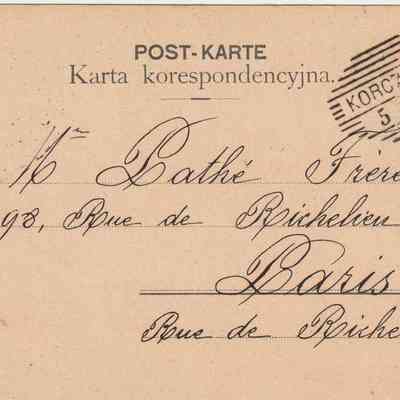 POST-KARTE
Karta korespondencyjna.
KORCZ
5
Mr Pathé Frère
98, Rue de Richelieu
Paris
Rue de Riche